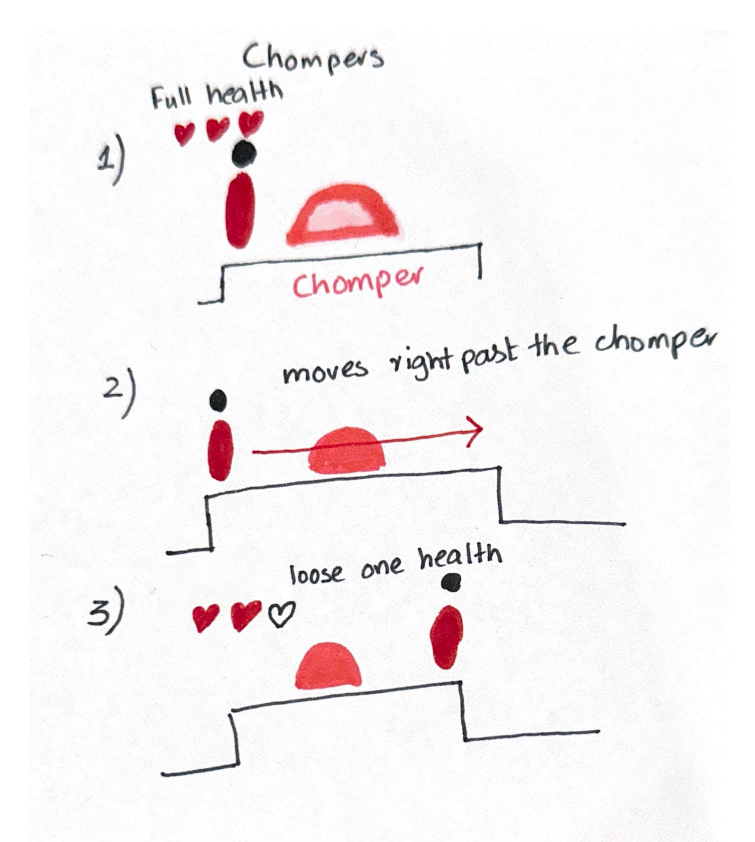 Chompers
Full health
1)
Chomper
moves right past the chomper
2)
loose one health
3)